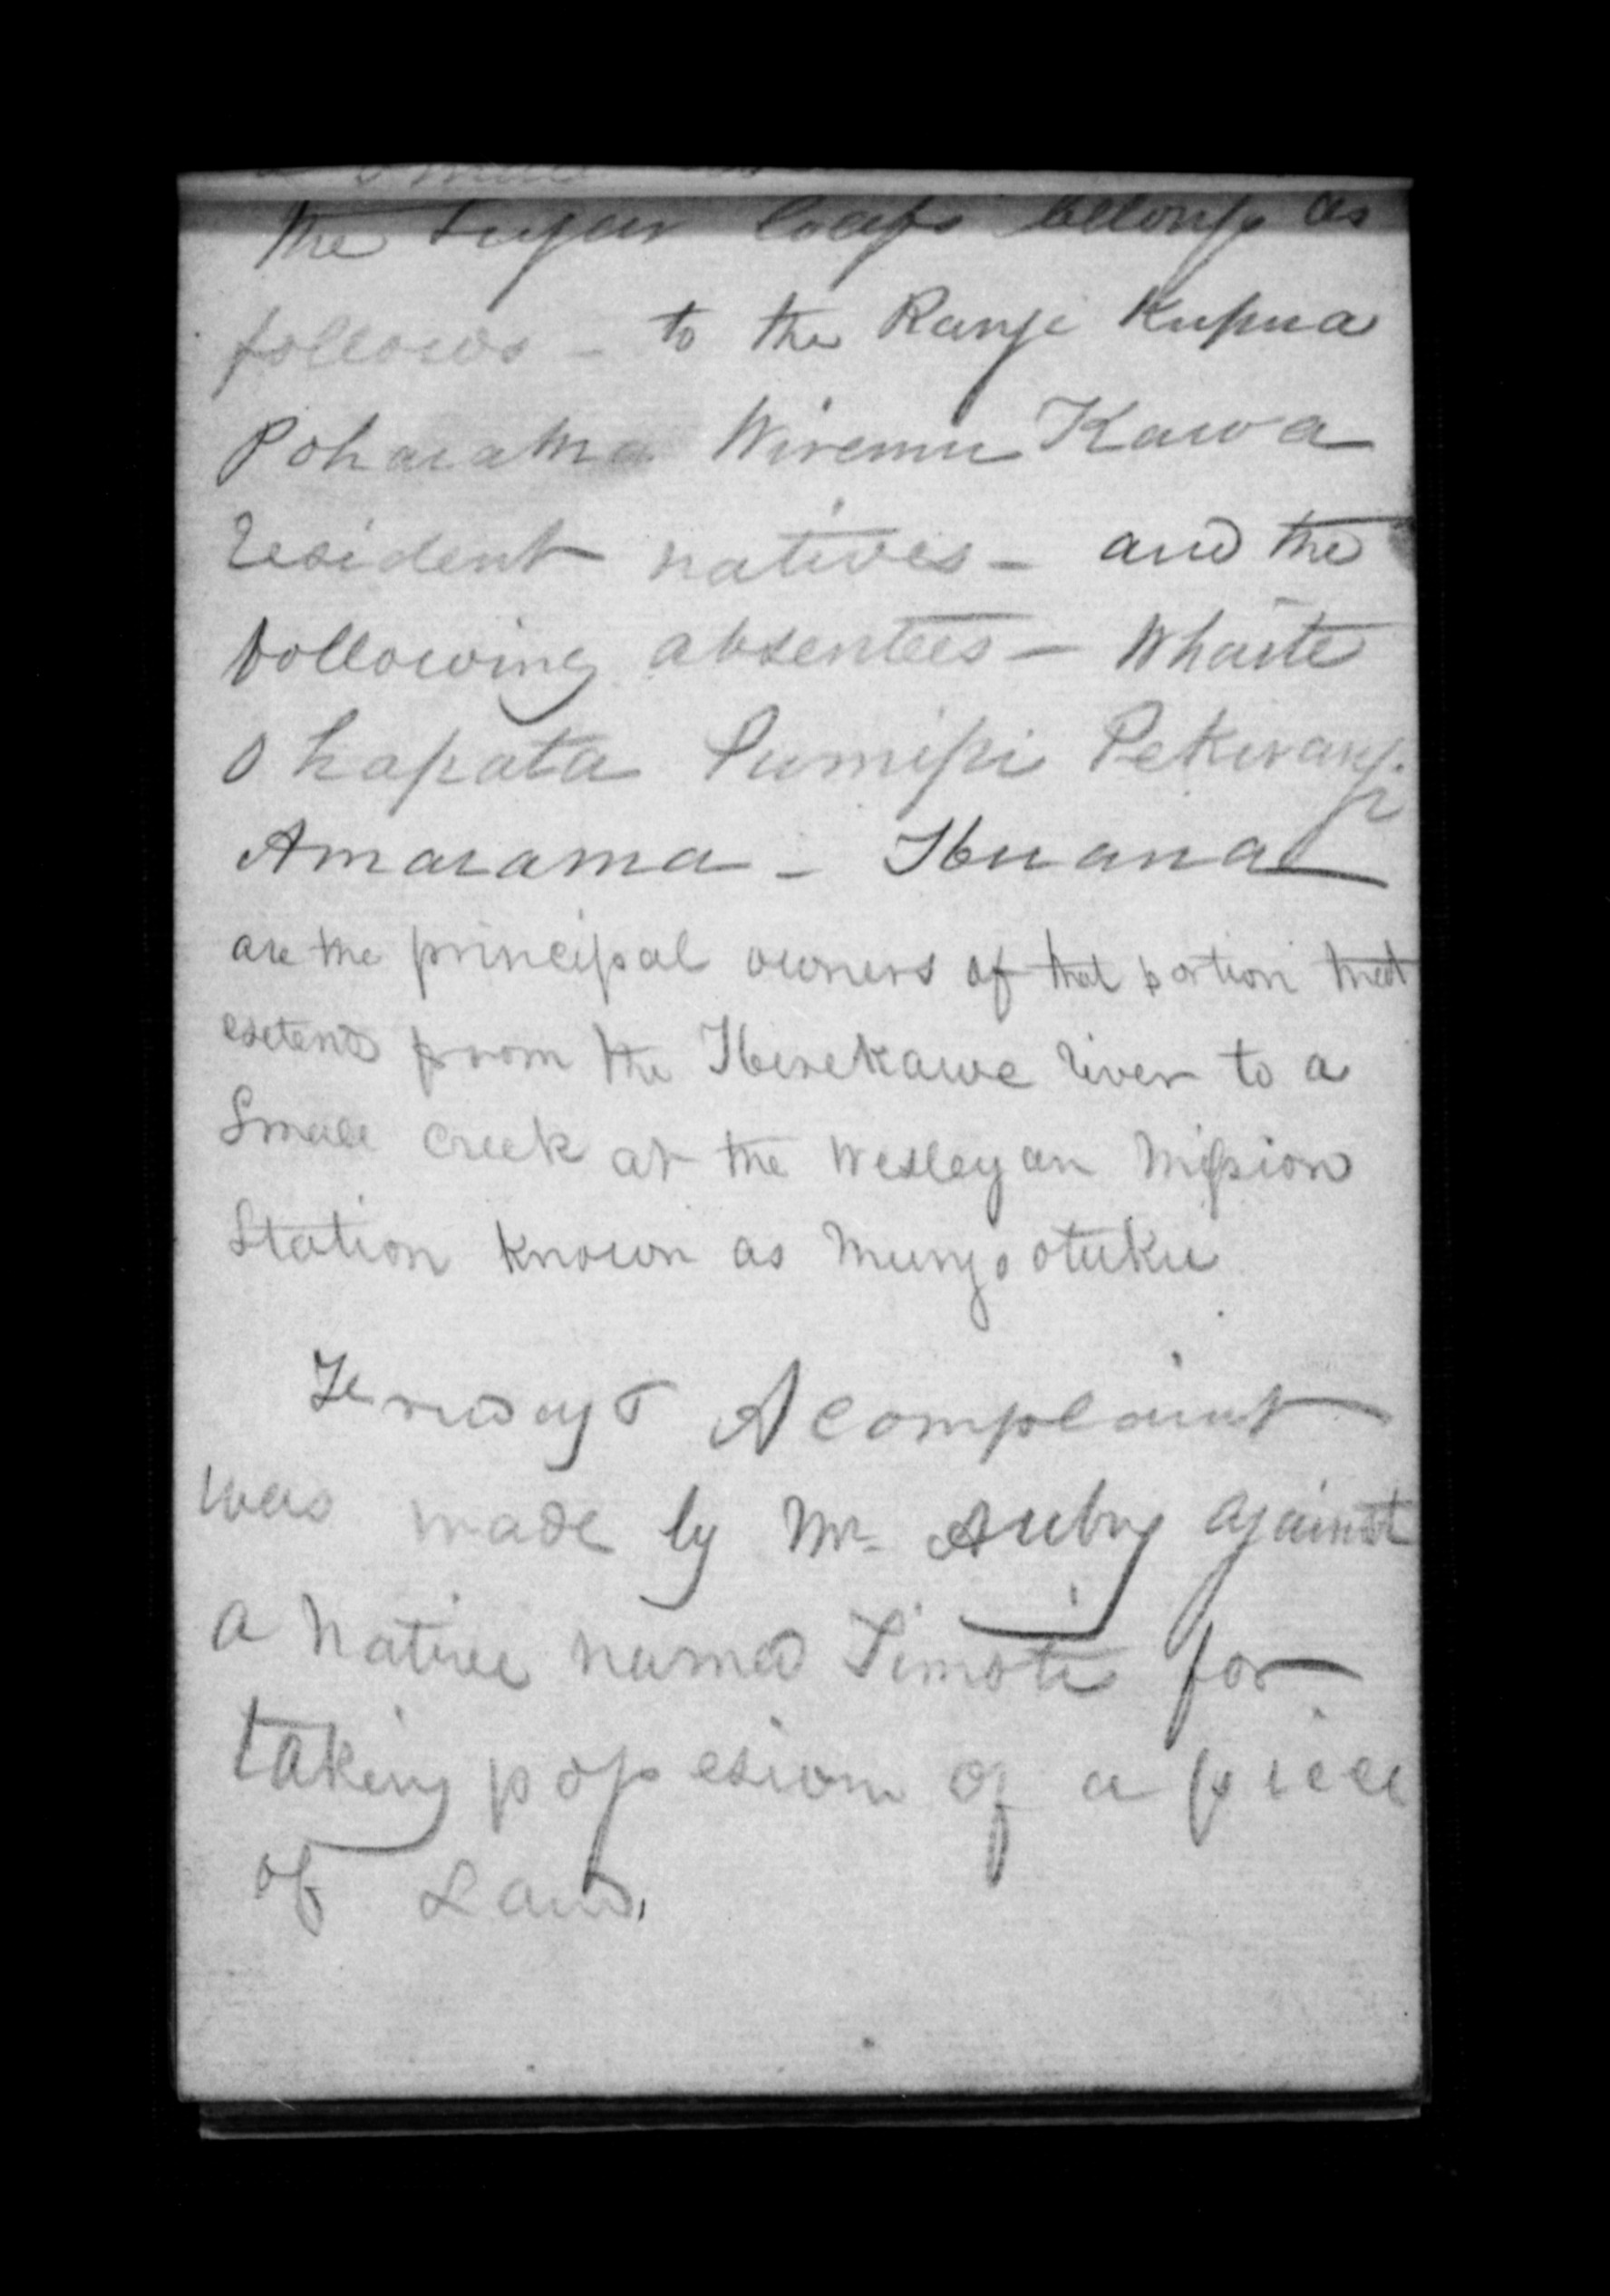 the Sugar loafs belongs as
follows - to the Rangi Kupua
Poharama Wiremu Kawa
resident natives - and the
following absentees - Whaite
O hapata Pumipi Pekirangi
Amarama - Huana
are the principal owners of that portion that
extends from the Herekawe river to a
Small creek at the Wesleyan Mission
Station known as Mungootuku
A complaint
was made by Mr Aubry against
a Native named Timoti for
taking possesion of a piece
of Land.